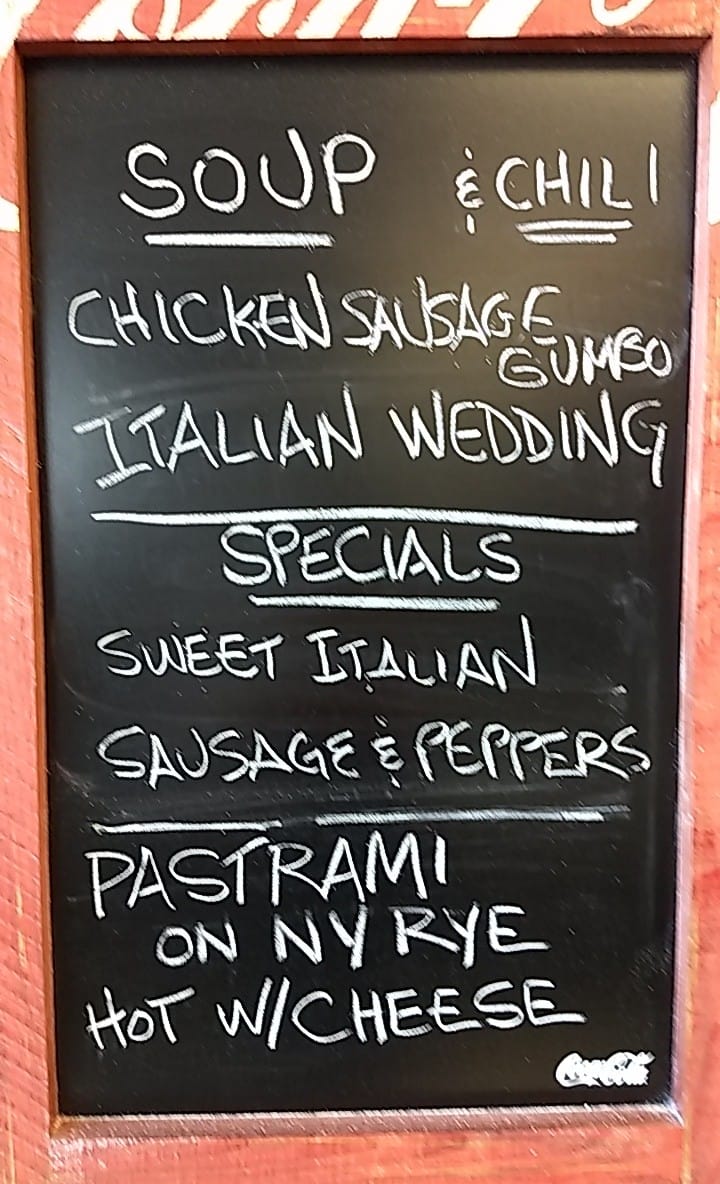 SOUP & CHILI
CHICKEN SAUSAGE
GUMBO
ITALIAN WEDDING
SPECIALS
SWEET ITALIAN
SAUSAGE & PEPPERS
PASTRAMI
ON NY RYE
HOT W/CHEESE
Coca-Cola